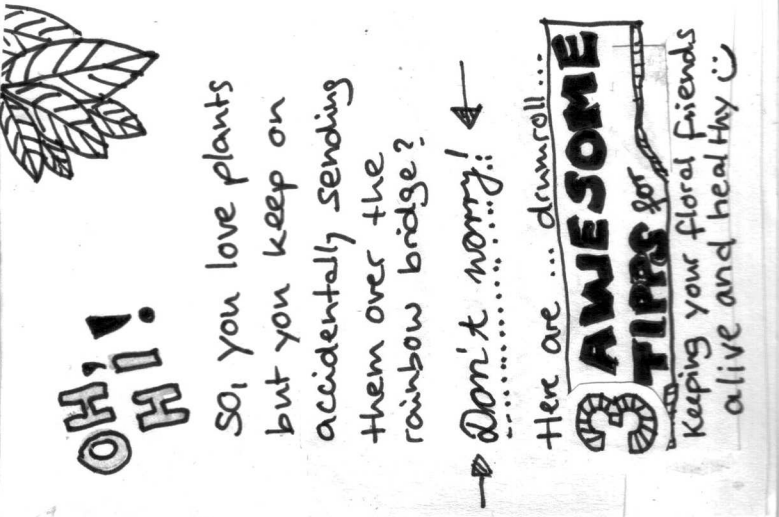 OH,
HI!
So, you love plants
but you keep on
accidentally sending
them over the
rainbow bridge?
Don't worry!
Here are ... drumroll....
3 AWESOME
TIPPS for
keeping your floral friends
alive and healthy